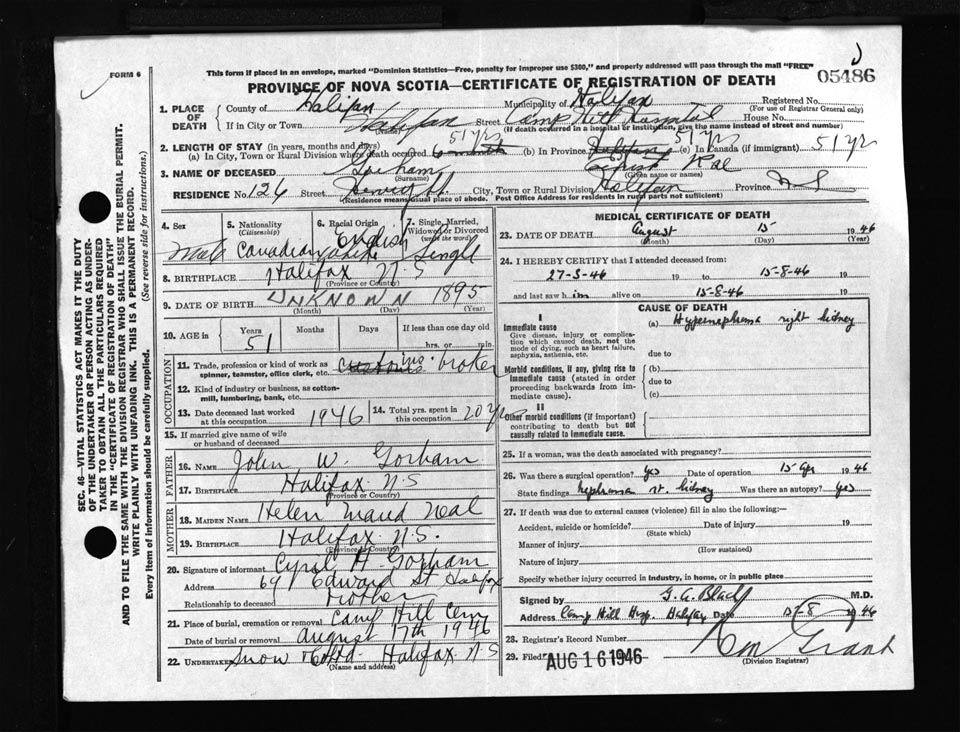 FORM 6
This form if placed in an envelope, marked "Dominion Statistics—Free, penalty for improper use $300," and properly addressed will pass through the mail "FREE"
05486
PROVINCE OF NOVA SCOTIA—CERTIFICATE OF REGISTRATION OF DEATH
SEC. 46—VITAL STATISTICS ACT MAKES IT THE DUTY
OF THE UNDERTAKER OR PERSON ACTING AS UNDER-
TAKER TO OBTAIN ALL THE PARTICULARS REQUIRED
IN THE "CERTIFICATE OF REGISTRATION OF DEATH"
AND TO FILE THE SAME WITH THE DIVISION REGISTRAR WHO SHALL ISSUE THE BURIAL PERMIT.
WRITE PLAINLY WITH UNFADING INK. THIS IS A PERMANENT RECORD.
Every item of information should be carefully supplied. (See reverse side for instructions.)
1. PLACE OF DEATH County of Halifax Municipality of Halifax Registered No.
(For use of Registrar General only)
If in City or Town Halifax Street Camp Hill Hospital House No.
(If death occurred in a hospital or institution, give the name instead of street and number)
2. LENGTH OF STAY (in years, months and days)
(a) In City, Town or Rural Division where death occurred 51 yrs (b) In Province 51 yrs (c) In Canada (if immigrant) 51 yr
3. NAME OF DECEASED Gorham Neal
(Surname) (Given name or names)
RESIDENCE No. 126 Street City, Town or Rural Division Halifax Province N S
(Residence means usual place of abode. Post Office Address for residents in rural parts not sufficient)
4. Sex Male
5. Nationality (Citizenship) Canadian
6. Racial Origin English
7. Single, Married, Widowed or Divorced (write the word) Single
8. BIRTHPLACE Halifax N S
(Province or County)
9. DATE OF BIRTH UNKNOWN 1895
(Month) (Day) (Year)
10. AGE in Years Months Days If less than one day old
51 hrs. or min.
OCCUPATION
11. Trade, profession or kind of work as spinner, teamster, office clerk, etc. customs ins. broker
12. Kind of industry or business, as cotton-mill, lumbering, bank, etc.
13. Date deceased last worked at this occupation 1946
14. Total yrs. spent in this occupation 20 yrs
15. If married give name of wife or husband of deceased
FATHER
16. NAME John W. Gorham
17. BIRTHPLACE Halifax N S
(Province or Country)
MOTHER
18. MAIDEN NAME Helen Maud Neal
19. BIRTHPLACE Halifax N.S.
(Province or Country)
20. Signature of informant Cyril H. Gorham
Address 69 Edward St Halifax
Relationship to deceased
21. Place of burial, cremation or removal Camp Hill Cem
Date of burial or removal August 17th 1946
22. Undertaker Snow Halifax N S
(Name and address)
MEDICAL CERTIFICATE OF DEATH
23. DATE OF DEATH August 15 1946
(Month) (Day) (Year)
24. I HEREBY CERTIFY that I attended deceased from:
27-3-46 19 to 15-8-46 19
and last saw him alive on 15-8-46 19
CAUSE OF DEATH
I
Immediate cause
Give disease, injury or complication which caused death, not the mode of dying, such as heart failure, asphyxia, asthenia, etc.
(a) Hypernephroma right kidney
due to
Morbid conditions, if any, giving rise to immediate cause (stated in order proceeding backwards from immediate cause).
(b)
due to
(c)
II
Other morbid conditions (if important) contributing to death but not causally related to immediate cause.
25. If a woman, was the death associated with pregnancy?
26. Was there a surgical operation? yes Date of operation 15 Apr 1946
State findings nephroma rt. kidney Was there an autopsy? yes
27. If death was due to external causes (violence) fill in also the following:—
Accident, suicide or homicide? Date of injury 19
(State which)
Manner of injury
(How sustained)
Nature of injury
Specify whether injury occurred in industry, in home, or in public place
Signed by M.D.
Address Camp Hill Hosp. Halifax Date 15-8 1946
28. Registrar's Record Number
29. Filed AUG 16 1946 Grant
(Division Registrar)